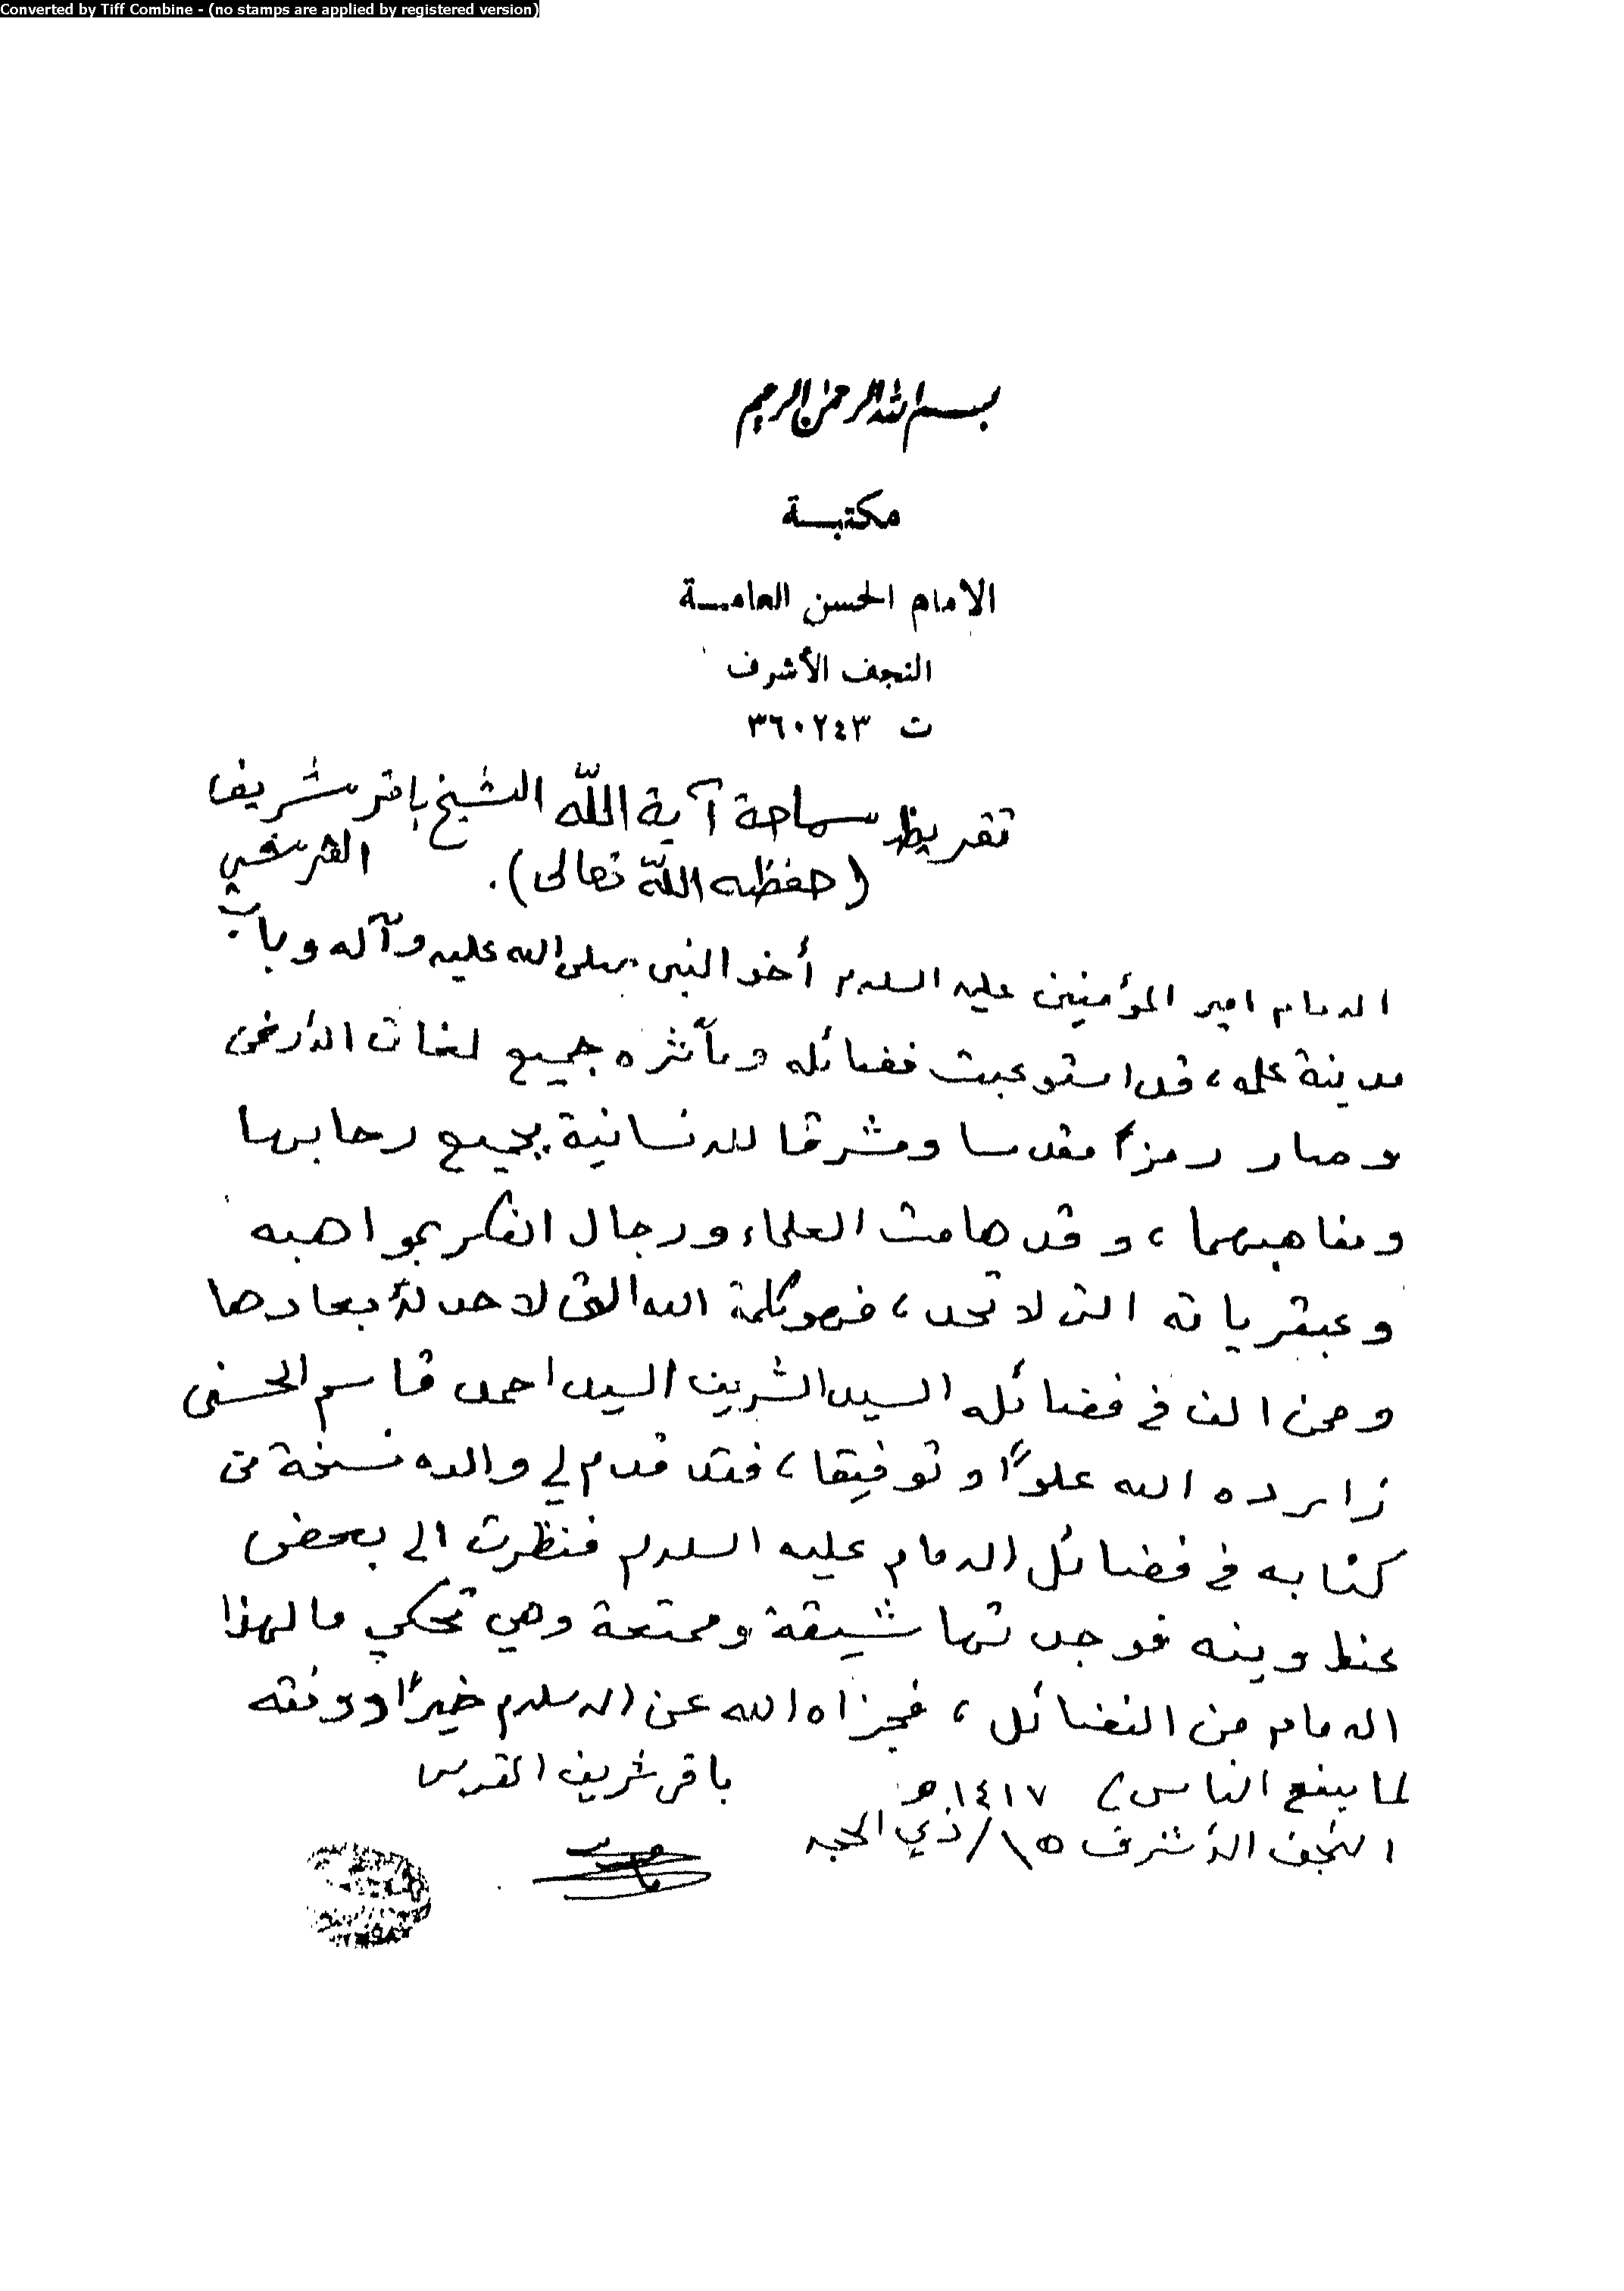 Converted by Tiff Combine - (no stamps are applied by registered version)
بسم الله الرحمن الرحيم
مكتبة
الامام الحسن العامة
النجف الأشرف
ت ٣٦٠٢٤٣
تقريظ سماحة آية اللّه الشيخ باقر شريف
القرشي
(حفظه اللّه تعالى).
الامام امير المؤمنين عليه السلام أخو النبي صلى الله عليه وآله وباب
مدينة علمه، قد استوعبت فضائله ومآثره جميع لغات الأرض
وصار رمزاً مقدسا ومشرقا للانسانية بجميع رحابها
ومفاهيمها، وقد هامت العلماء ورجال الفكر بمواهبه
وعبقرياته التي لا تحد، فهو كلمة الله التي لا حد لأبعادها
وممن الف في فضائله السيد الشريف السيد احمد قاسم الحسني
زاده الله علوّاً وتوفيقا، فقد قدم لي والده نسخة من
كتابه في فضائل الامام عليه السلام فنظرت الى بعض
عناوينه فوجدتها شيقة وممتعة وهي تحكي ما لهذا
الامام من الفضائل، فجزاه الله عن الاسلام خيراً ووفقه
لما ينفع الناس ١٤١٧هـ باقر شريف القرشي
النجف الأشرف ١٥/ذي الحجه